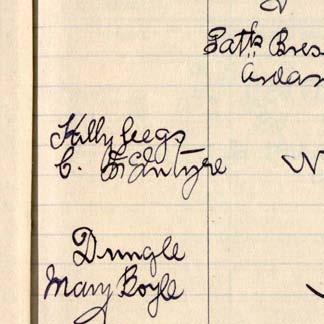 Patk Bres
Ardar
Killygeegs
C. McIntyre
N
Drungle
Mary Boyle